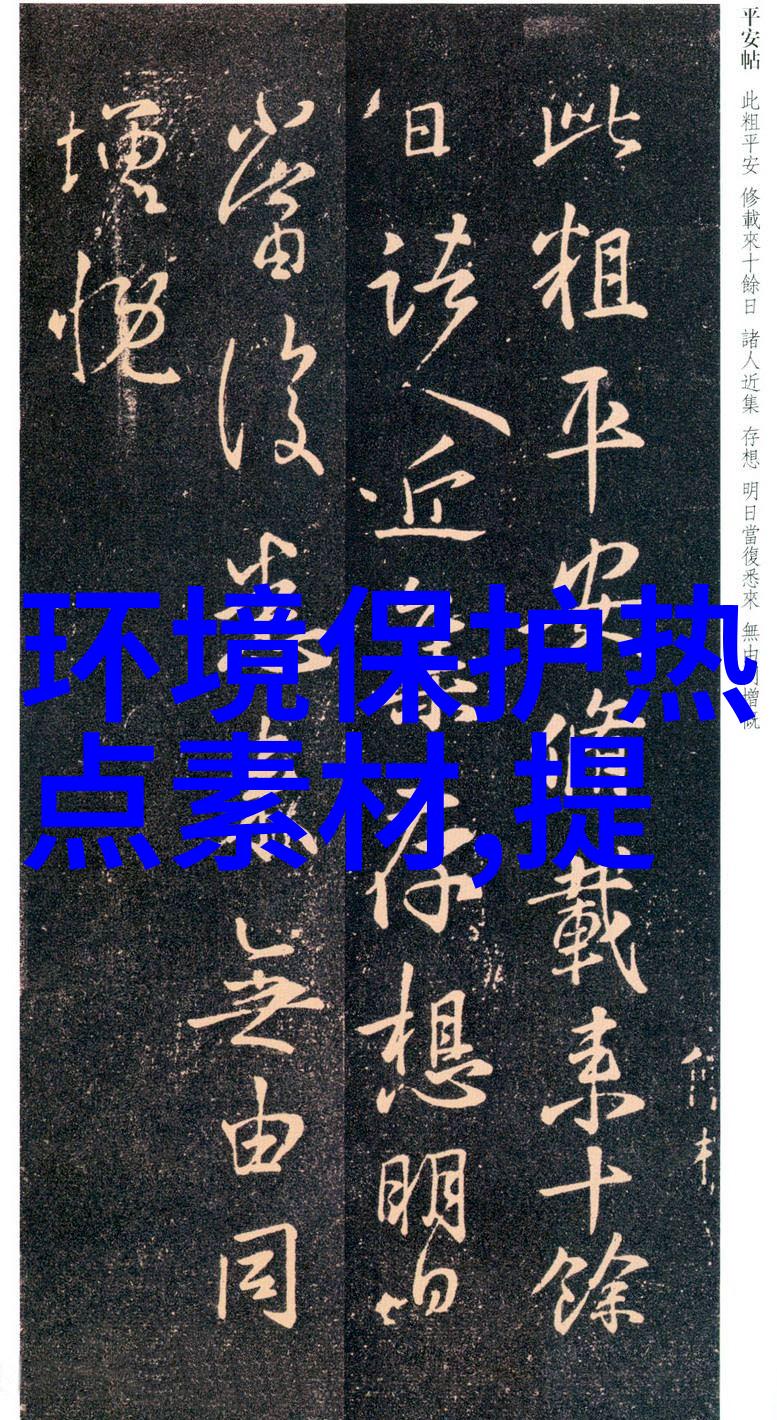 平安帖 此粗平安 修載來十餘日 諸人近集 存想 明日當復悉來 無由同增慨
此粗平安脩載来十餘
日諸人近集存想明日
當復悉来無由同
增慨
环境保护热
点素材,提